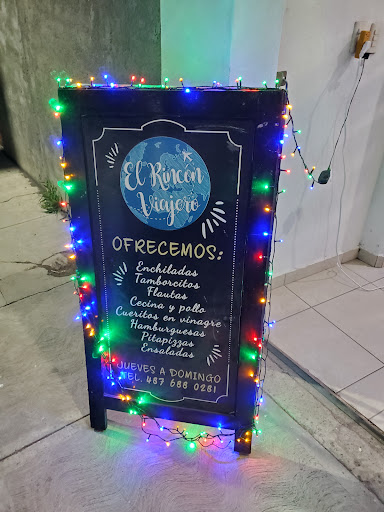 El Rincón
Viajero
OFRECEMOS:
Enchiladas
Tamborcitos
Flautas
Cecina y pollo
Cueritos en vinagre
Hamburguesas
Pitapizzas
Ensaladas
JUEVES A DOMINGO
TEL. 487 688 0281